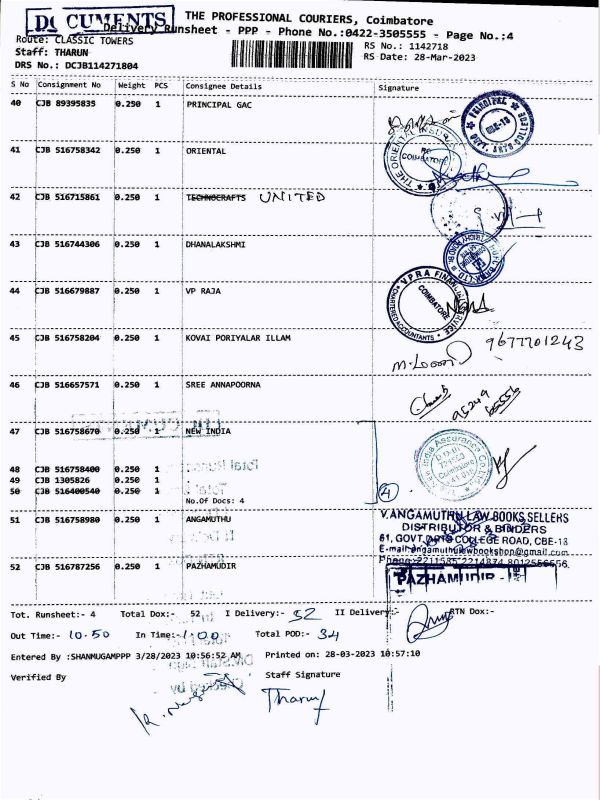 DOCUMENTS
THE PROFESSIONAL COURIERS, Coimbatore
Delivery Runsheet - PPP - Phone No.:0422-3505555 - Page No.:4
Route: CLASSIC TOWERS
RS No.: 1142718
Staff: THARUN
RS Date: 28-Mar-2023
DRS No.: DCJB114271804
S No Consignment No Weight PCS Consignee Details Signature
40 CJB 89395835 0.250 1 PRINCIPAL GAC
41 CJB 516758342 0.250 1 ORIENTAL
42 CJB 516715861 0.250 1 TECHNOCRAFTS UNITED
43 CJB 516744306 0.250 1 DHANALAKSHMI
44 CJB 516679887 0.250 1 VP RAJA
VPRA FINANCIAL SERVICE
CHARTERED ACCOUNTANTS
COIMBATORE
45 CJB 516758204 0.250 1 KOVAI PORIYALAR ILLAM
9677701243
46 CJB 516657571 0.250 1 SREE ANNAPOORNA
47 CJB 516758670 0.250 1 NEW INDIA
48 CJB 516758400 0.250 1
49 CJB 1305826 0.250 1
50 CJB 516400540 0.250 1
4
No.Of Docs: 4
51 CJB 516758980 0.250 1 ANGAMUTHU
V.ANGAMUTHU LAW BOOKS SELLERS
DISTRIBUTOR & BINDERS
61, GOVT ARTS COLLEGE ROAD, CBE-18
52 CJB 516787256 0.250 1 PAZHAMUDIR
PAZHAMUDIR
Tot. Runsheet:- 4 Total Dox:- 52 I Delivery:- 52 II Delivery:- RTN Dox:-
Out Time:- 10.50 In Time:- 1:00 Total POD:- 34
Entered By :SHANMUGAMPPP 3/28/2023 10:56:52 AM Printed on: 28-03-2023 10:57:10
Verified By Staff Signature
Tharun